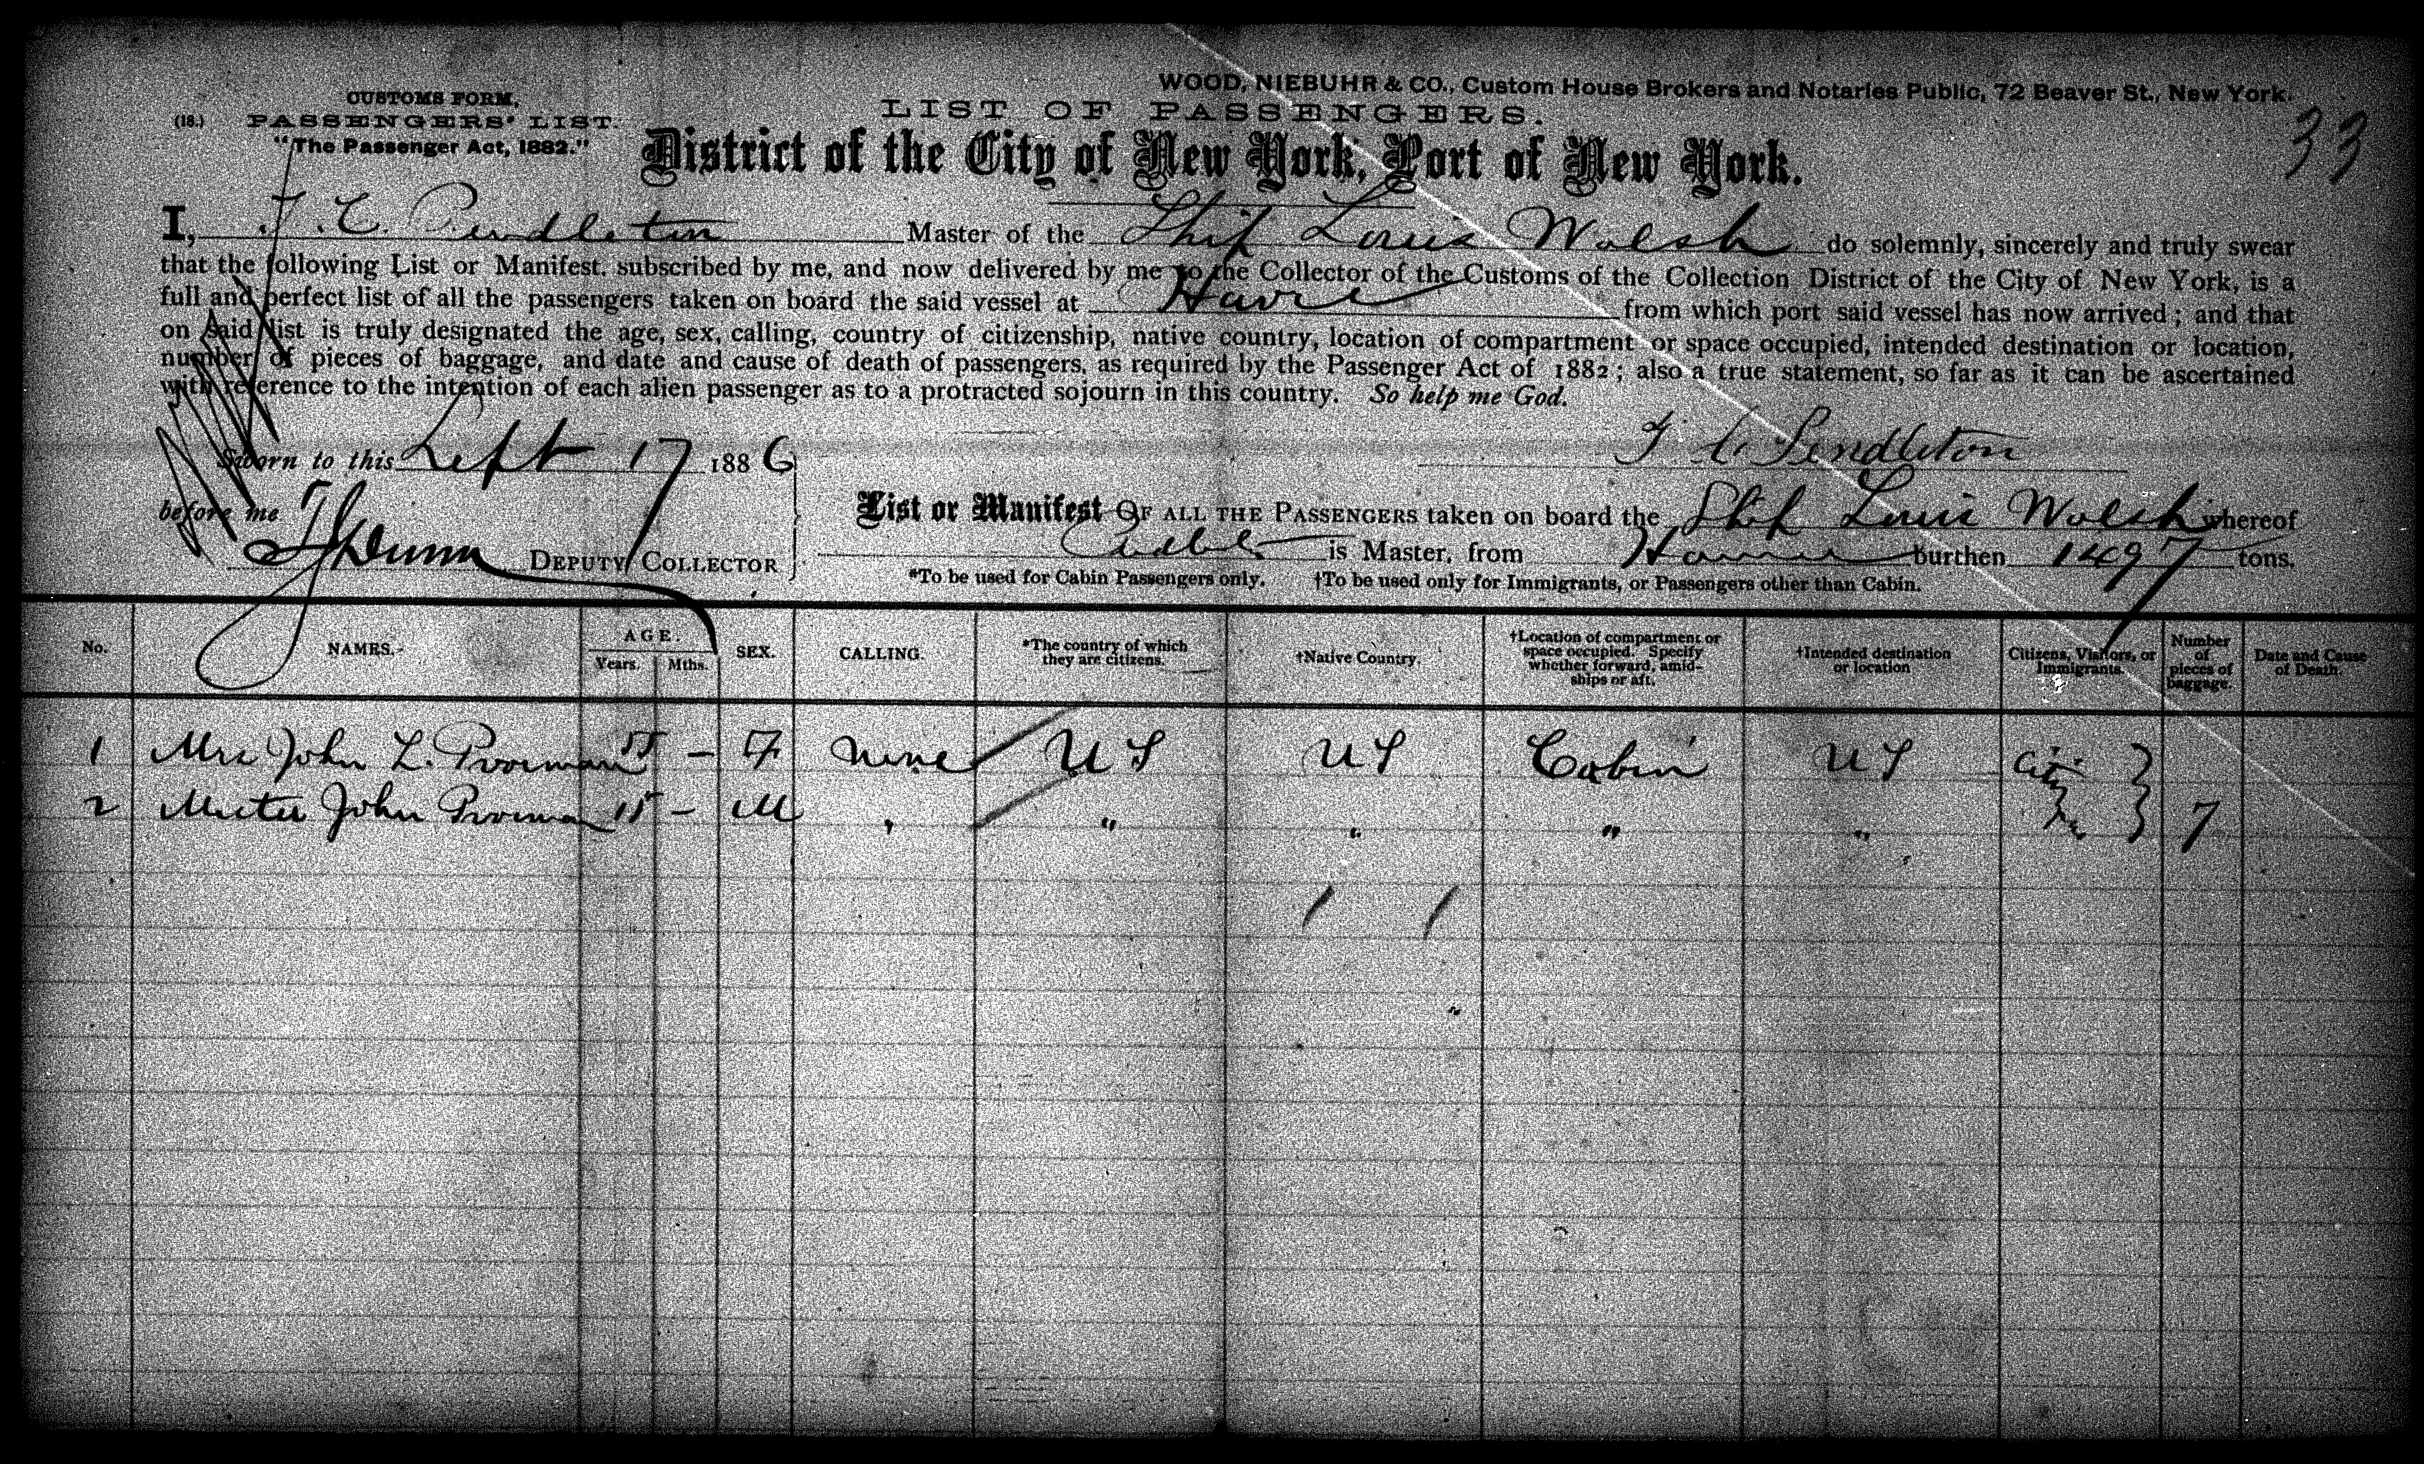 WOOD, NIEBUHR & CO., Custom House Brokers and Notaries Public, 72 Beaver St., New York.
CUSTOMS FORM,
(18.) PASSENGERS' LIST.
"The Passenger Act, 1882."
LIST OF PASSENGERS.
33
District of the City of New York, Port of New York.
I, T. C. Pendleton Master of the Ship Louis Walsh do solemnly, sincerely and truly swear
that the following List or Manifest, subscribed by me, and now delivered by me to the Collector of the Customs of the Collection District of the City of New York, is a
full and perfect list of all the passengers taken on board the said vessel at Havre from which port said vessel has now arrived; and that
on said list is truly designated the age, sex, calling, country of citizenship, native country, location of compartment or space occupied, intended destination or location,
number of pieces of baggage, and date and cause of death of passengers, as required by the Passenger Act of 1882; also a true statement, so far as it can be ascertained
with reference to the intention of each alien passenger as to a protracted sojourn in this country. So help me God.
T. C. Pendleton
Sworn to this Sept 17 1886
before me
Dunn DEPUTY COLLECTOR
List or Manifest OF ALL THE PASSENGERS taken on board the Ship Louis Walsh whereof
is Master, from Havre burthen 1497 tons.
*To be used for Cabin Passengers only. †To be used only for Immigrants, or Passengers other than Cabin.
No. NAMES. AGE. Years. Mths. SEX. CALLING. *The country of which they are citizens. †Native Country. †Location of compartment or space occupied. Specify whether forward, amidships or aft. †Intended destination or location Citizens, Visitors, or Immigrants. Number of pieces of baggage. Date and Cause of Death.
1 Mrs John L. - F none U S U S Cabin U S
2 John 15 - M , " " " " 7